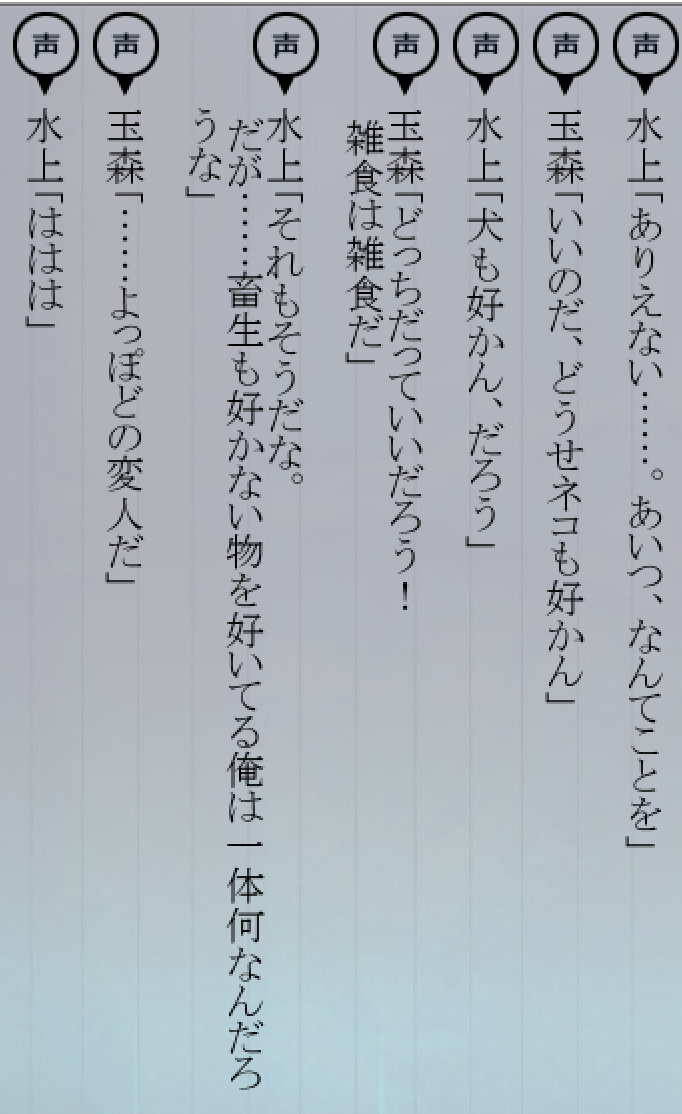 声
水上「ありえない……。あいつ、なんてことを」
声
玉森「いいのだ、どうせネコも好かん」
声
水上「犬も好かん、だろう」
声
玉森「どっちだっていいだろう！
雑食は雑食だ」
声
水上「それもそうだな。
だが……畜生も好かない物を好いてる俺は一体何なんだろ
うな」
声
玉森「……よっぽどの変人だ」
声
水上「ははは」